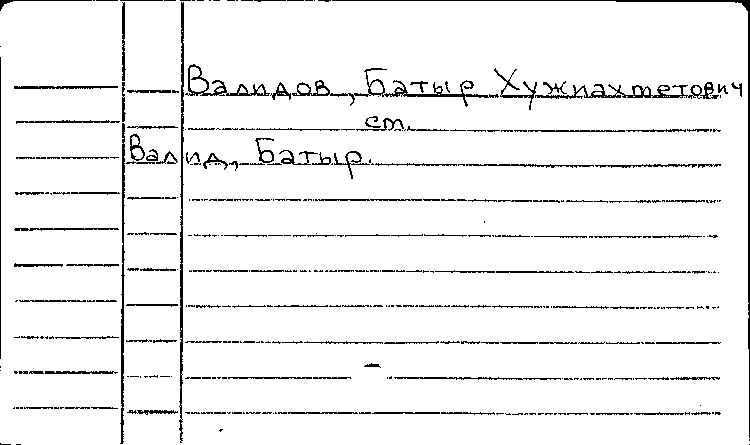 Валидов, Батыр Хужиахметович
см.
Валид, Батыр.